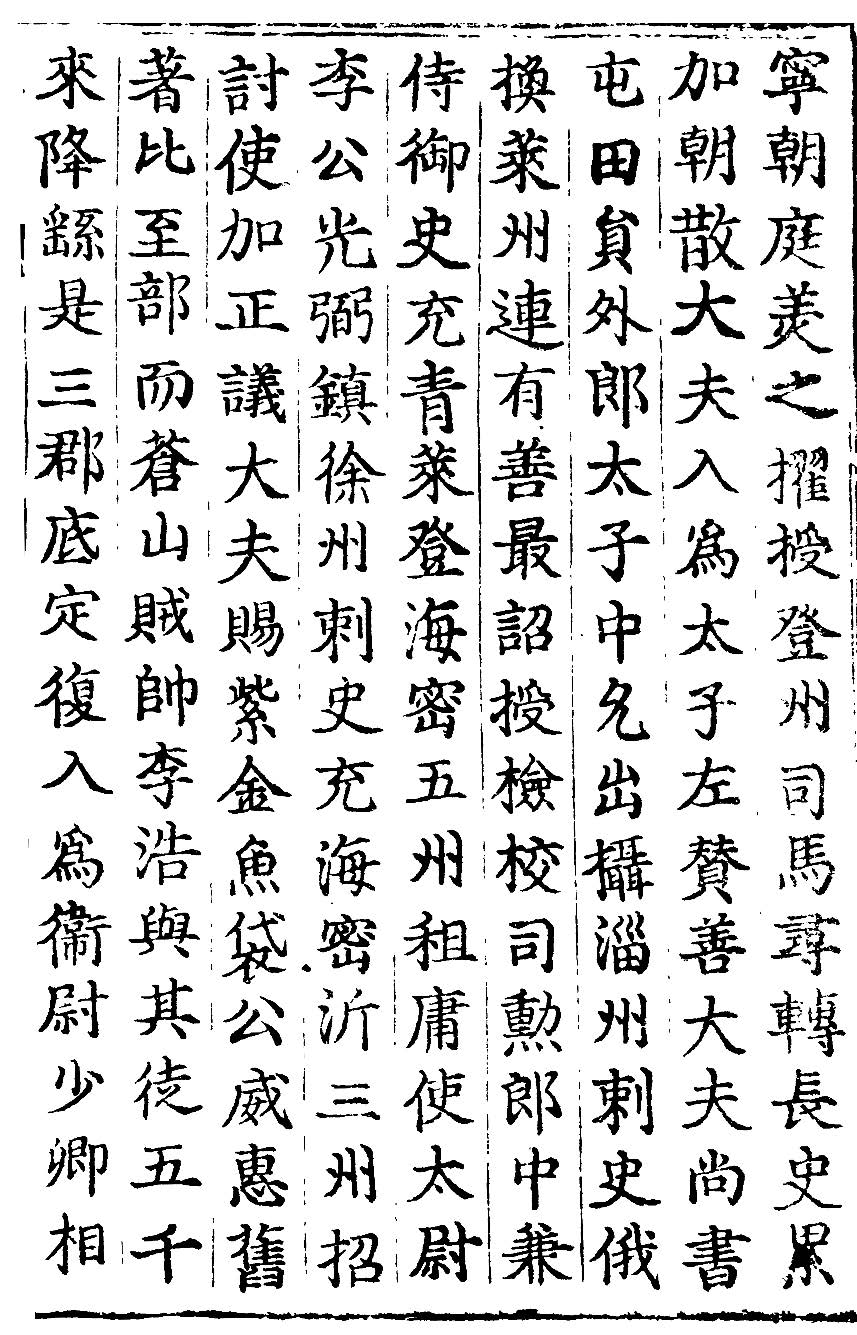 寧朝庭羙之擢授登州司馬尋轉長史累
加朝散大夫入爲太子左賛善大夫尚書
屯田貟外郎太子中允出攝淄州刺史俄
換萊州連有善最詔授檢校司勲郎中兼
侍御史充青萊登海密五州租庸使太尉
李公光弼鎮徐州刺史充海密沂三州招
討使加正議大夫賜紫金魚袋公威惠舊
著比至部而蒼山賊帥李浩與其徒五千
來降繇是三郡底定復入爲衞尉少卿相